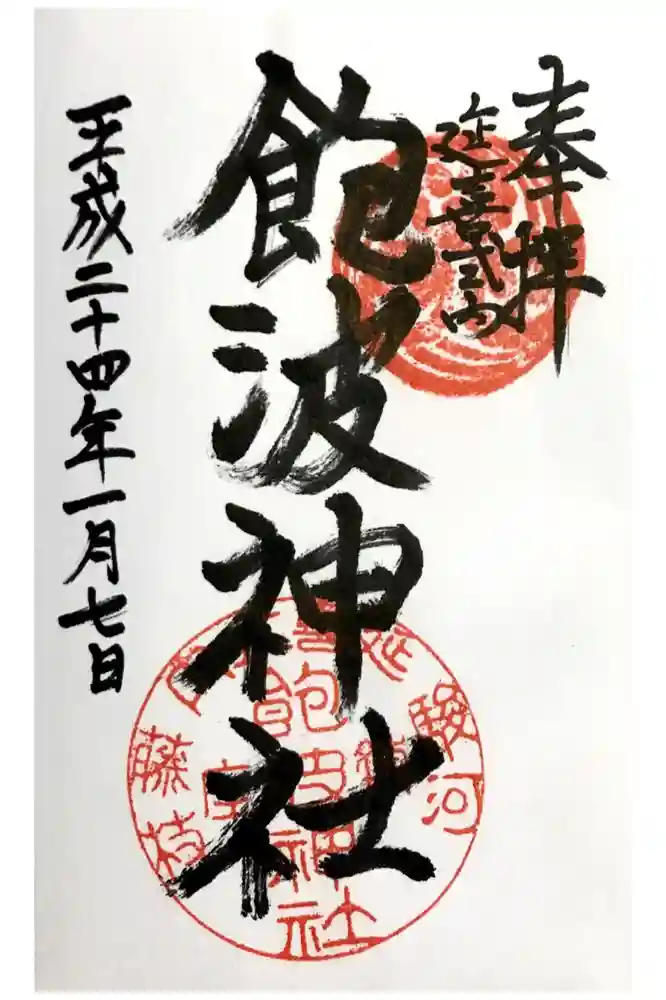 奉拝
延喜式内
飽波神社
平成二十四年一月七日
駿河
藤枝
飽波神社